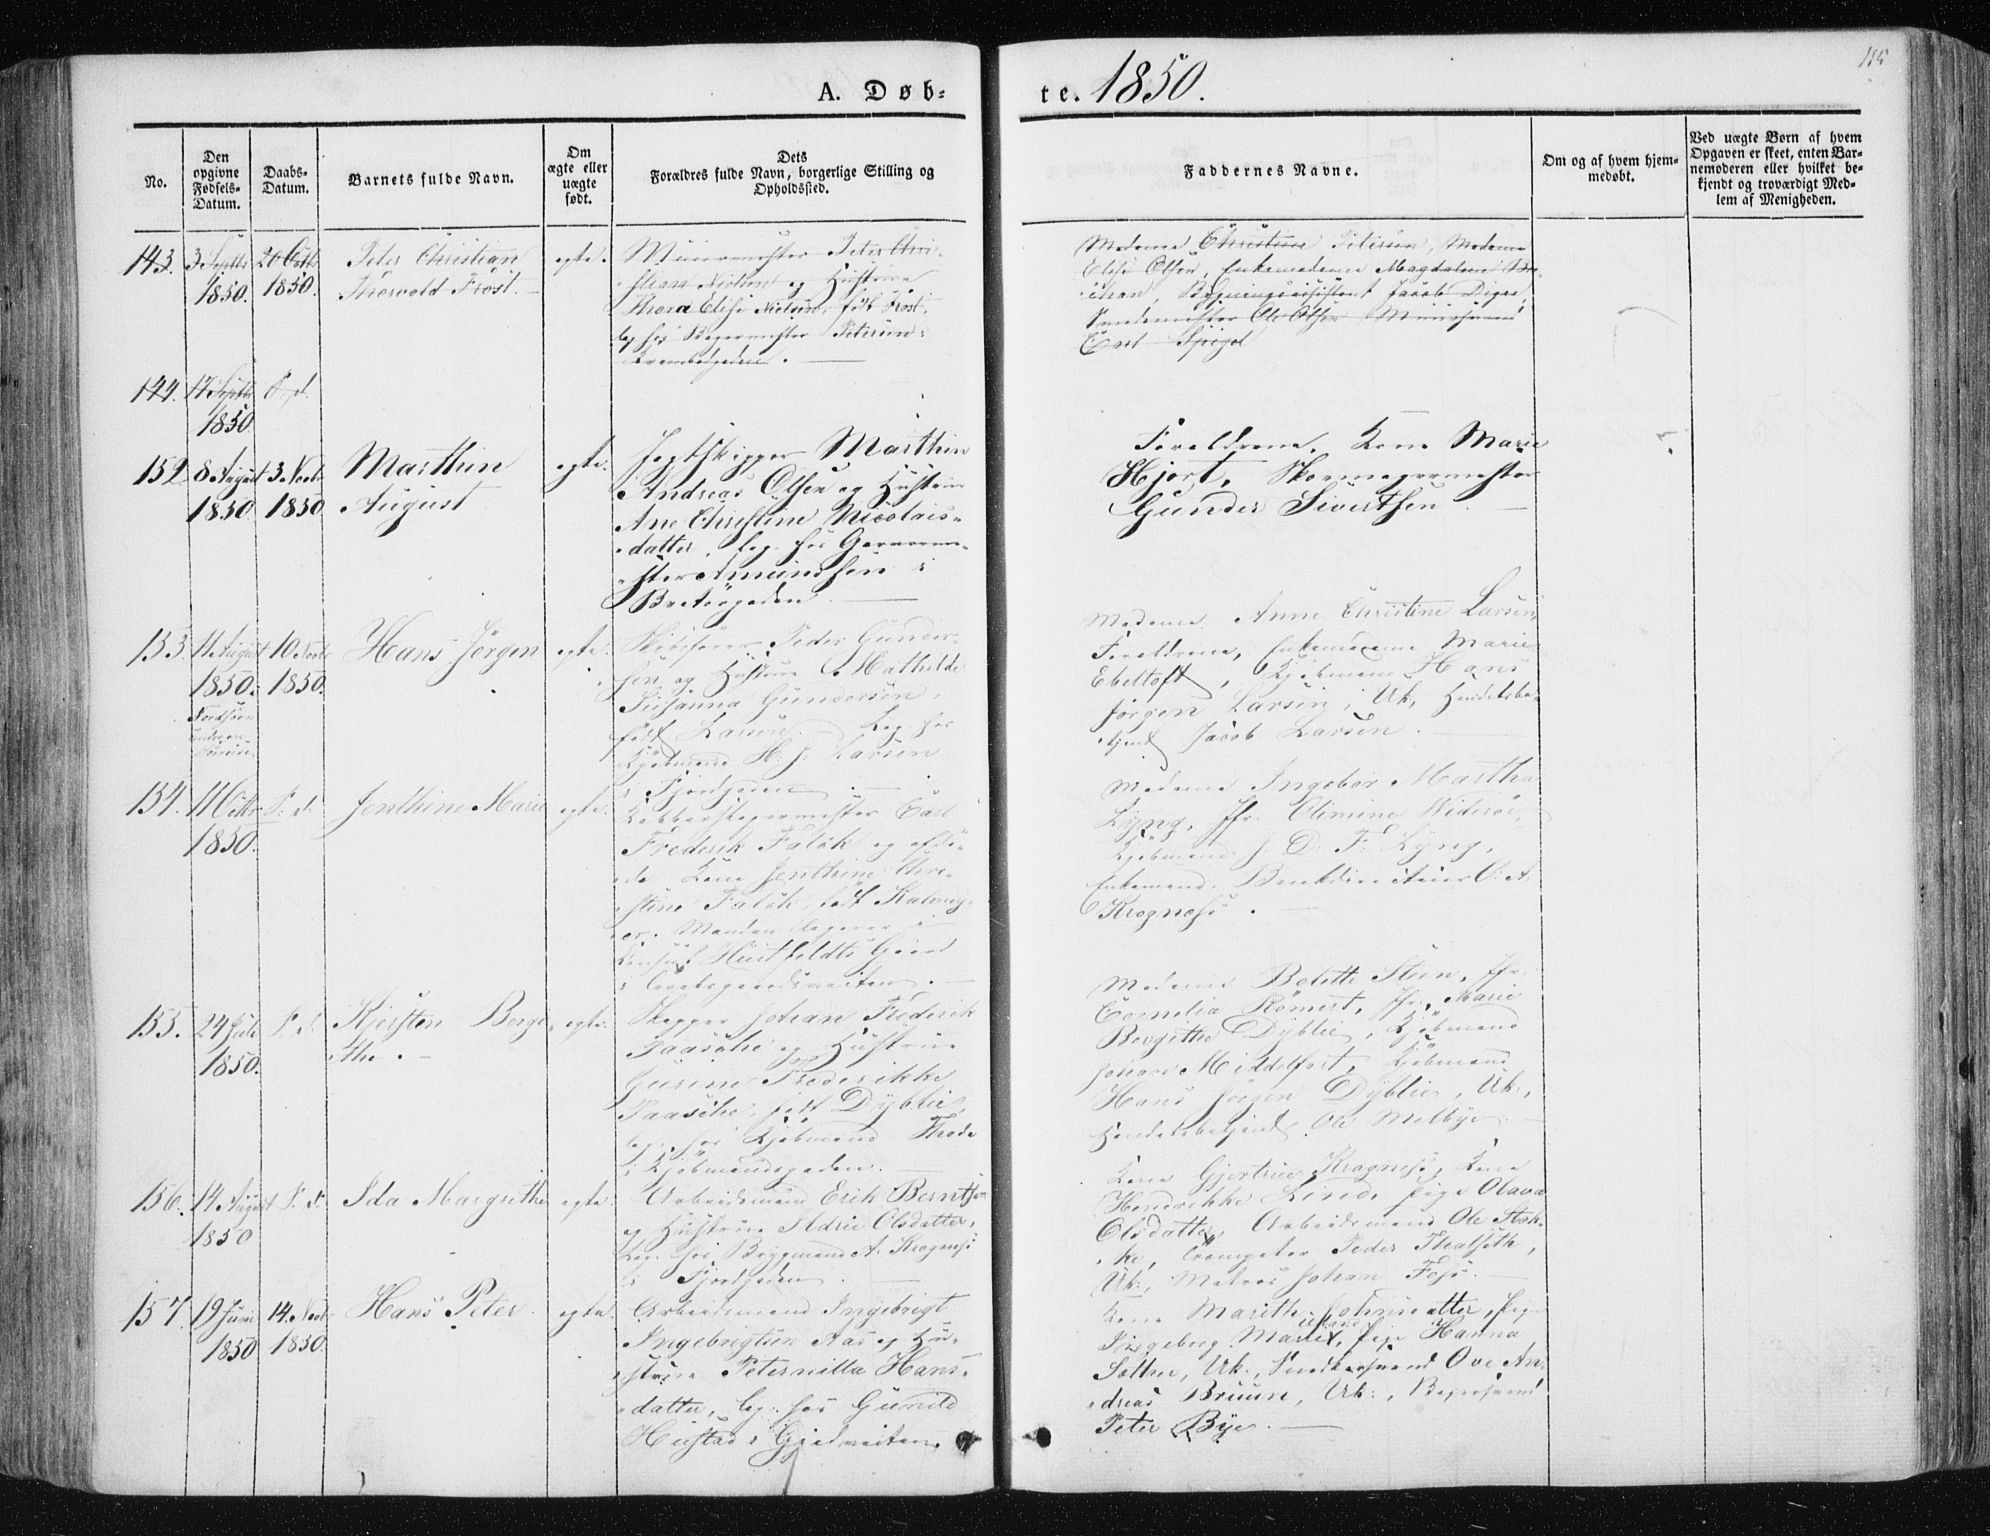 115
A. Døb-
te. 1850.
No.
Den
opgivne
Fødsels-
Datum.
Daabs-
Datum.
Barnets fulde Navn.
Om
ægte eller
uægte
født.
Dets
Forældres fulde Navn, borgerlige Stilling og
Opholdssted.
Faddernes Navne.
Om og af hvem hjem-
medøbt.
Ved uægte Børn af hvem
Opgaven er skeet, enten Bar-
nemoderen eller hvilket be-
kjendt og troværdigt Med-
lem af Menigheden.
143.
3 Septbr
1850.
20 Octbr
1850.
Peter Christian
Thorvald Frost.
egte.
Muurmester Peter Chri-
stian Nielsen og Hustrue
Thora Elise Nielsen, født Frost,
log. hos Bagermester Petersen i
Madame Christine Petersen, Madame
Elise Olsen, Enkemadame Magdalene
Bygningsassistent Jacob Digre,
Smedemester Ole Olsen
Carl
144.
17 Septbr
1850.
S. d.
152
8 August
1850
3. Novbr
1850
Marthin
August
egte.
Jagtskipper Marthin
Andreas Olsen og Hustrue
Ane Christine Nicolais-
datter, log. hos Garverme-
ster Amundsen i
Bratørgaden
Forældrene, Kone Marie
Hjort, Skomagermester
Gunder Sivertsen.
153.
11 August
1850.
10. Novbr
1850.
Hans Jörgen
egte.
Skibsfører Peder Gunder-
sen og Hustrue Mathilde
Susanna Gundersen,
født Larsen. Log. hos
Kjöbmand H. J. Larsen
i Fjordgaden.
Madame Anne Christine Larsen,
Forældrene, Enkemadame Marie
Ebeltoft, Kjöbmand Hans
Jörgen Larsen, Uk, Handelsbe-
tjent Jacob Larsen.
154.
11 Octbr
1850.
S. d.
Jenthine Marie
egte.
Kobberslagermester Carl
Frederik Falck og afdö-
de Kone Jenthine Chri-
stine Falck, født Kalmey-
er. Manden logerer i
Consul Huitfeldts Gaard
Madame Ingebor Martha
Lyng, Jfr. Olimine Wideröe,
Kjöbmand J. D. F. Lyng,
Enkemand, Bankdirecteur O. A.
Krognæss.
155.
24 Juli
1850.
S. d.
Kjersten Berge-
the.
egte.
Skipper Johan Frederik
Paasche og Hustrue
Gurine Frederikke
Paasche, født Dyblie,
log. hos Kjöbmand Thode
i Kjöbmandsgaden.
Madame Bolette Steen, Jfr.
Cornelia Römert, Jfr. Marie
Bergithe Dyblie, Kjöbmand
Johan Middelfart, Kjöbmand
Hans Jörgen Dyblie, Uk.,
Handelsbetjent Ole Melbye.
156.
14 August
1850
S. d.
Ida Margrethe
egte.
Arbeidsmand Erik Berntsen
og Hustrue Marie Olsdatter,
Log. hos Brygmand A. Krognæss
i Fjordgaden.
Kone Gjertrue Krognæss, Kone
Hendrikke Lind, Pige Olava
Olsdatter, Arbeidsmand Ole Stok-
ke, Trompeter Peder Thalseth,
Uk., Matros Johan Foss.
157.
19 Juni
1850
14. Novbr
1850.
Hans Peter
egte.
Arbeidsmand Ingebrigt
Ingebrigtsen Aas og Hu-
strue Peternilla Hans-
datter, log. hos Gunild
Hustad i Gjedveiten.
Kone Marith Johnsdatter, Pige
Ingeborg Marie, Pige Hanna
Sæther, Uk., Snedkersvend Ove An-
dreas Bruun, Uk., Bagersvend
Peter Bye.